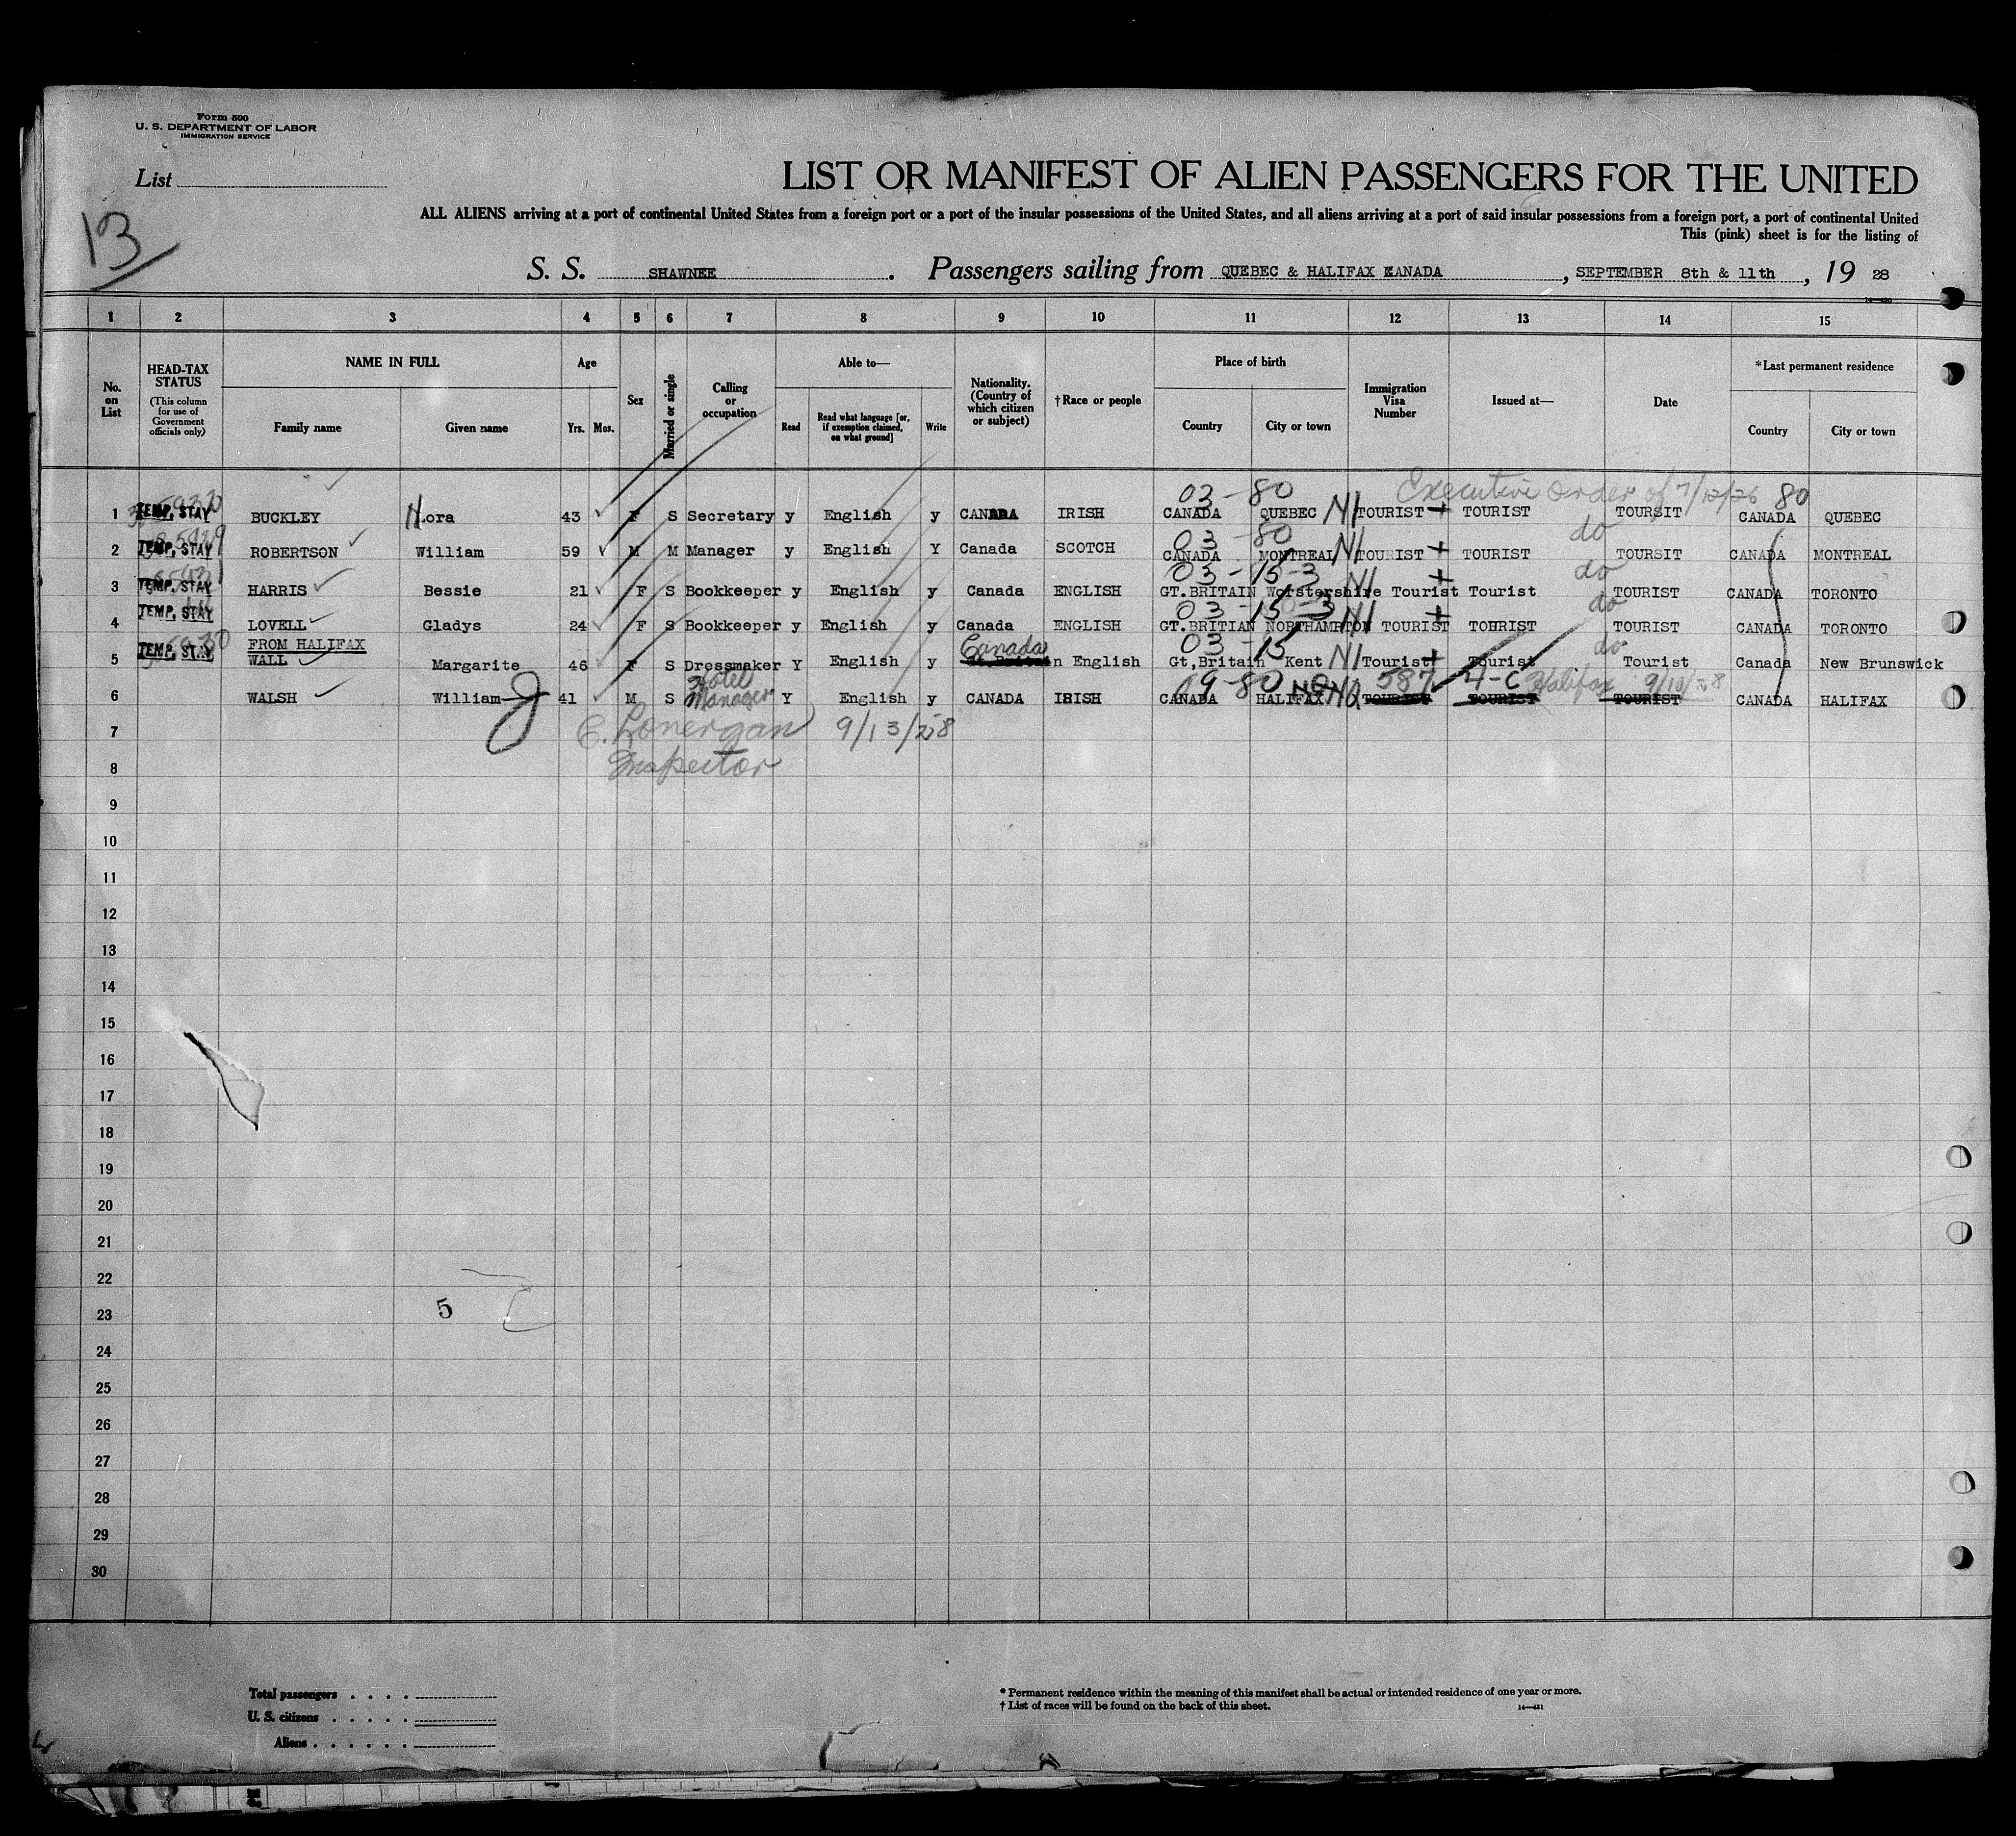 Form 500
U. S. DEPARTMENT OF LABOR
IMMIGRATION SERVICE
List
13
LIST OR MANIFEST OF ALIEN PASSENGERS FOR THE UNITED
ALL ALIENS arriving at a port of continental United States from a foreign port or a port of the insular possessions of the United States, and all aliens arriving at a port of said insular possessions from a foreign port, a port of continental United
This (pink) sheet is for the listing of
S. S. SHAWNEE . Passengers sailing from QUEBEC & HALIFAX KANADA , SEPTEMBER 8th & 11th , 19 28
1 2 3 4 5 6 7 8 9 10 11 12 13 14 15
No. on List
HEAD-TAX STATUS
(This column for use of Government officials only)
NAME IN FULL
Family name
Given name
Age
Yrs. Mos.
Sex
Married or single
Calling or occupation
Able to—
Read
Read what language [or, if exemption claimed, on what ground]
Write
Nationality. (Country of which citizen or subject)
†Race or people
Place of birth
Country
City or town
Immigration Visa Number
Issued at—
Date
*Last permanent residence
Country
City or town
03-80 Executive Order of 7/12/26 80
1 TEMP. STAY BUCKLEY Nora 43 F S Secretary y English y CANADA IRISH CANADA QUEBEC N1 TOURIST TOURIST TOURSIT CANADA QUEBEC
03-80 do
2 TEMP. STAY ROBERTSON William 59 M M Manager y English Y Canada SCOTCH CANADA MONTREAL N1 TOURIST TOURIST TOURSIT CANADA MONTREAL
03-15-3 do
3 TEMP. STAY HARRIS Bessie 21 F S Bookkeeper y English y Canada ENGLISH GT.BRITAIN Worstershire N1 Tourist Tourist TOURIST CANADA TORONTO
03-15-3 do
4 TEMP. STAY LOVELL Gladys 24 F S Bookkeeper y English y Canada ENGLISH GT.BRITIAN NORTHAMPTON N1 TOURIST TOURIST TOURIST CANADA TORONTO
FROM HALIFAX Canada 03-15 do
5 TEMP. STAY WALL Margarite 46 F S Dressmaker Y English y Gt.Britain English Gt,Britain Kent N1 Tourist Tourist Tourist Canada New Brunswick
Hotel Manager 09-80 587 4-C Halifax 9/10/28
6 WALSH William J 41 M S Y English y CANADA IRISH CANADA HALIFAX TOURIST TOURIST TOURIST CANADA HALIFAX
7 C. Lonergan 9/13/28
8 Inspector
9
10
11
12
13
14
15
16
17
18
19
20
21
22
23 5
24
25
26
27
28
29
30
Total passengers . . . .
U. S. citizens . . . . .
Aliens . . . . . .
* Permanent residence within the meaning of this manifest shall be actual or intended residence of one year or more.
† List of races will be found on the back of this sheet.
14—431